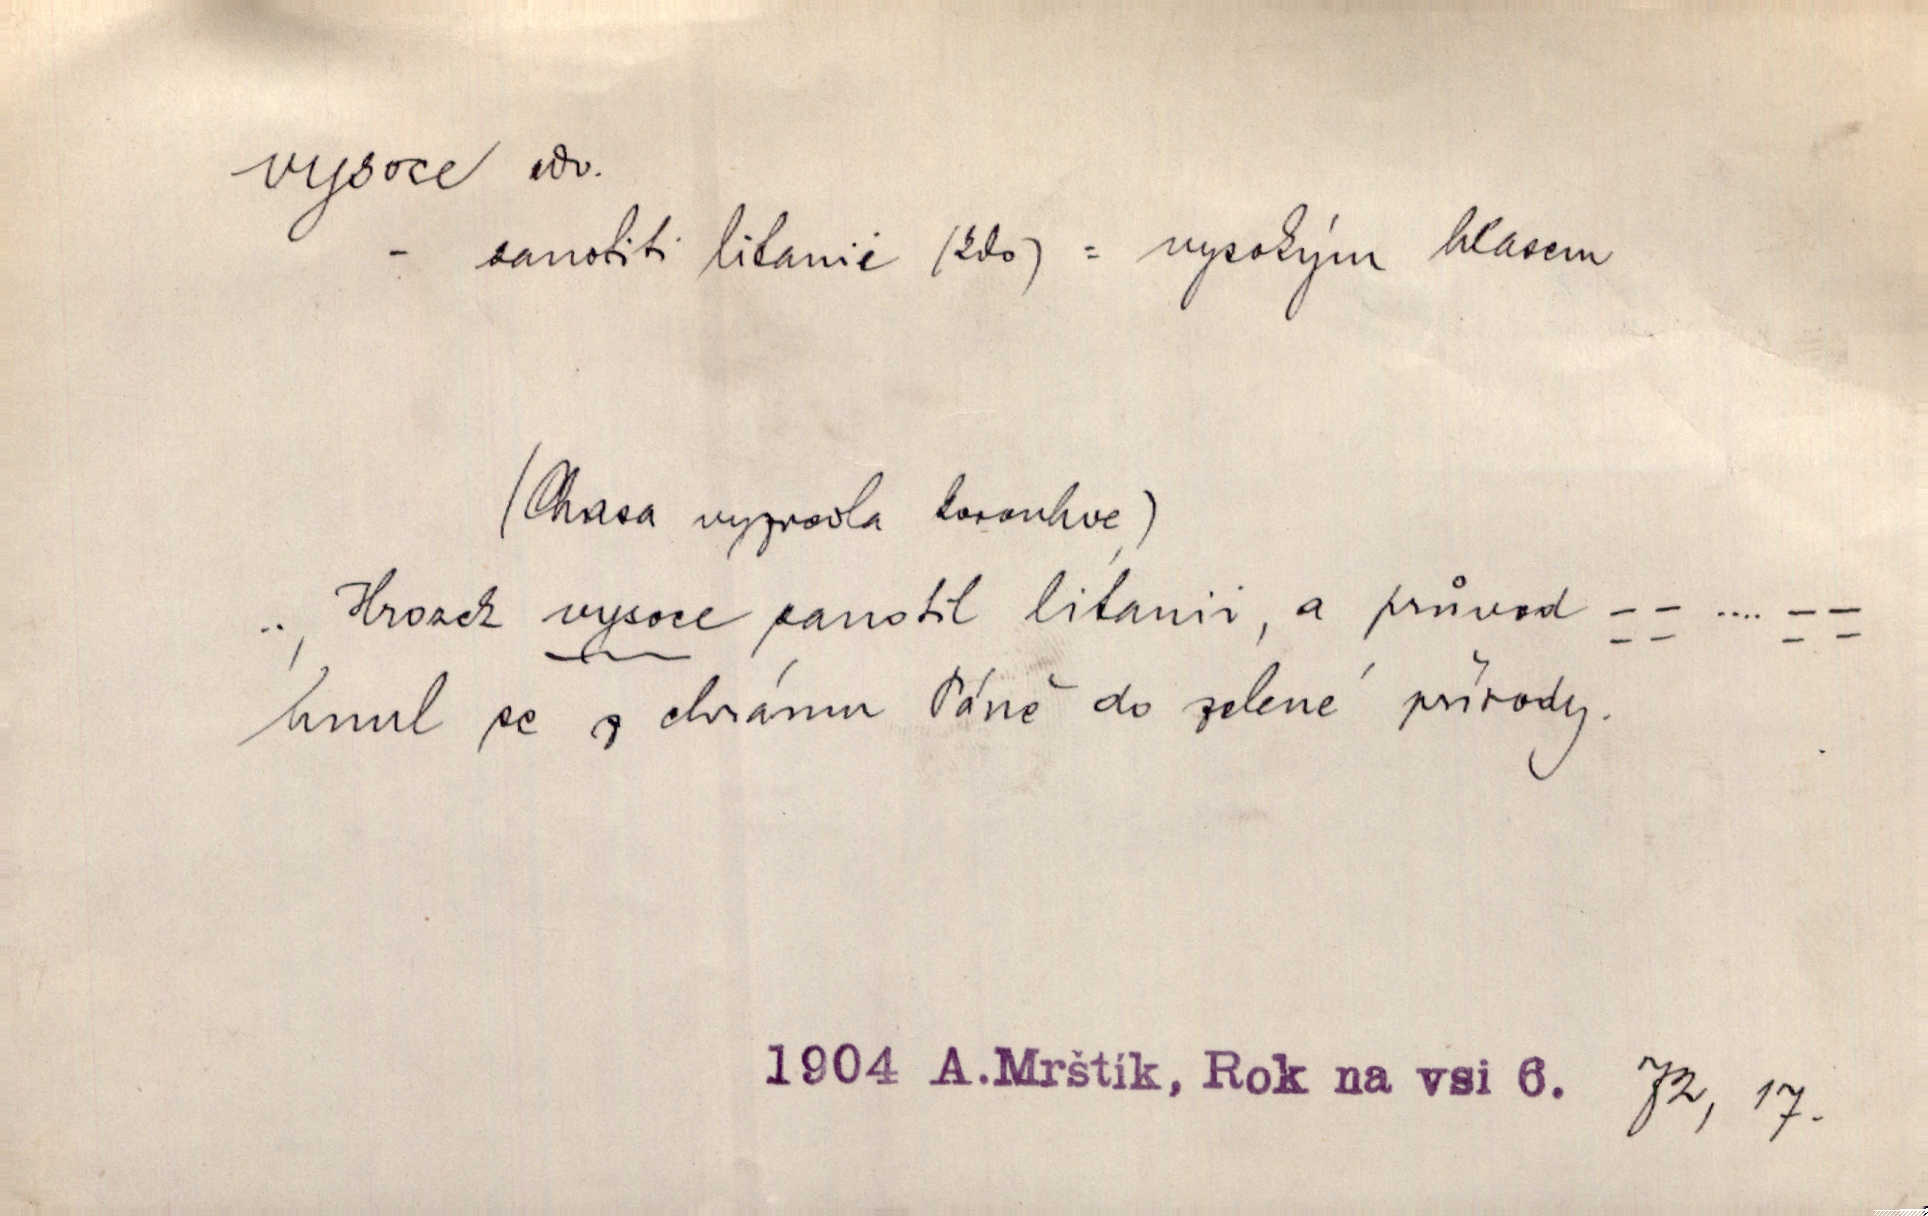 vysoce adv.
- zanotiti litanie (kdo) = vysokým hlasem
(Chasa vyzvedla korouhve)
.., Hrozek vysoce zanotil litanii, a průvod -- .... --
hnul se z chrámu Páně do zelené přírody.
1904 A.Mrštík, Rok na vsi 6. 72, 17.